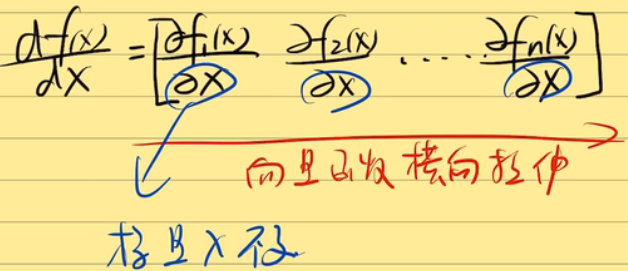 df(x)/dx = [∂f₁(x)/∂x ∂f₂(x)/∂x ..... ∂fn(x)/∂x]
向量函数横向拉伸
标量x不变